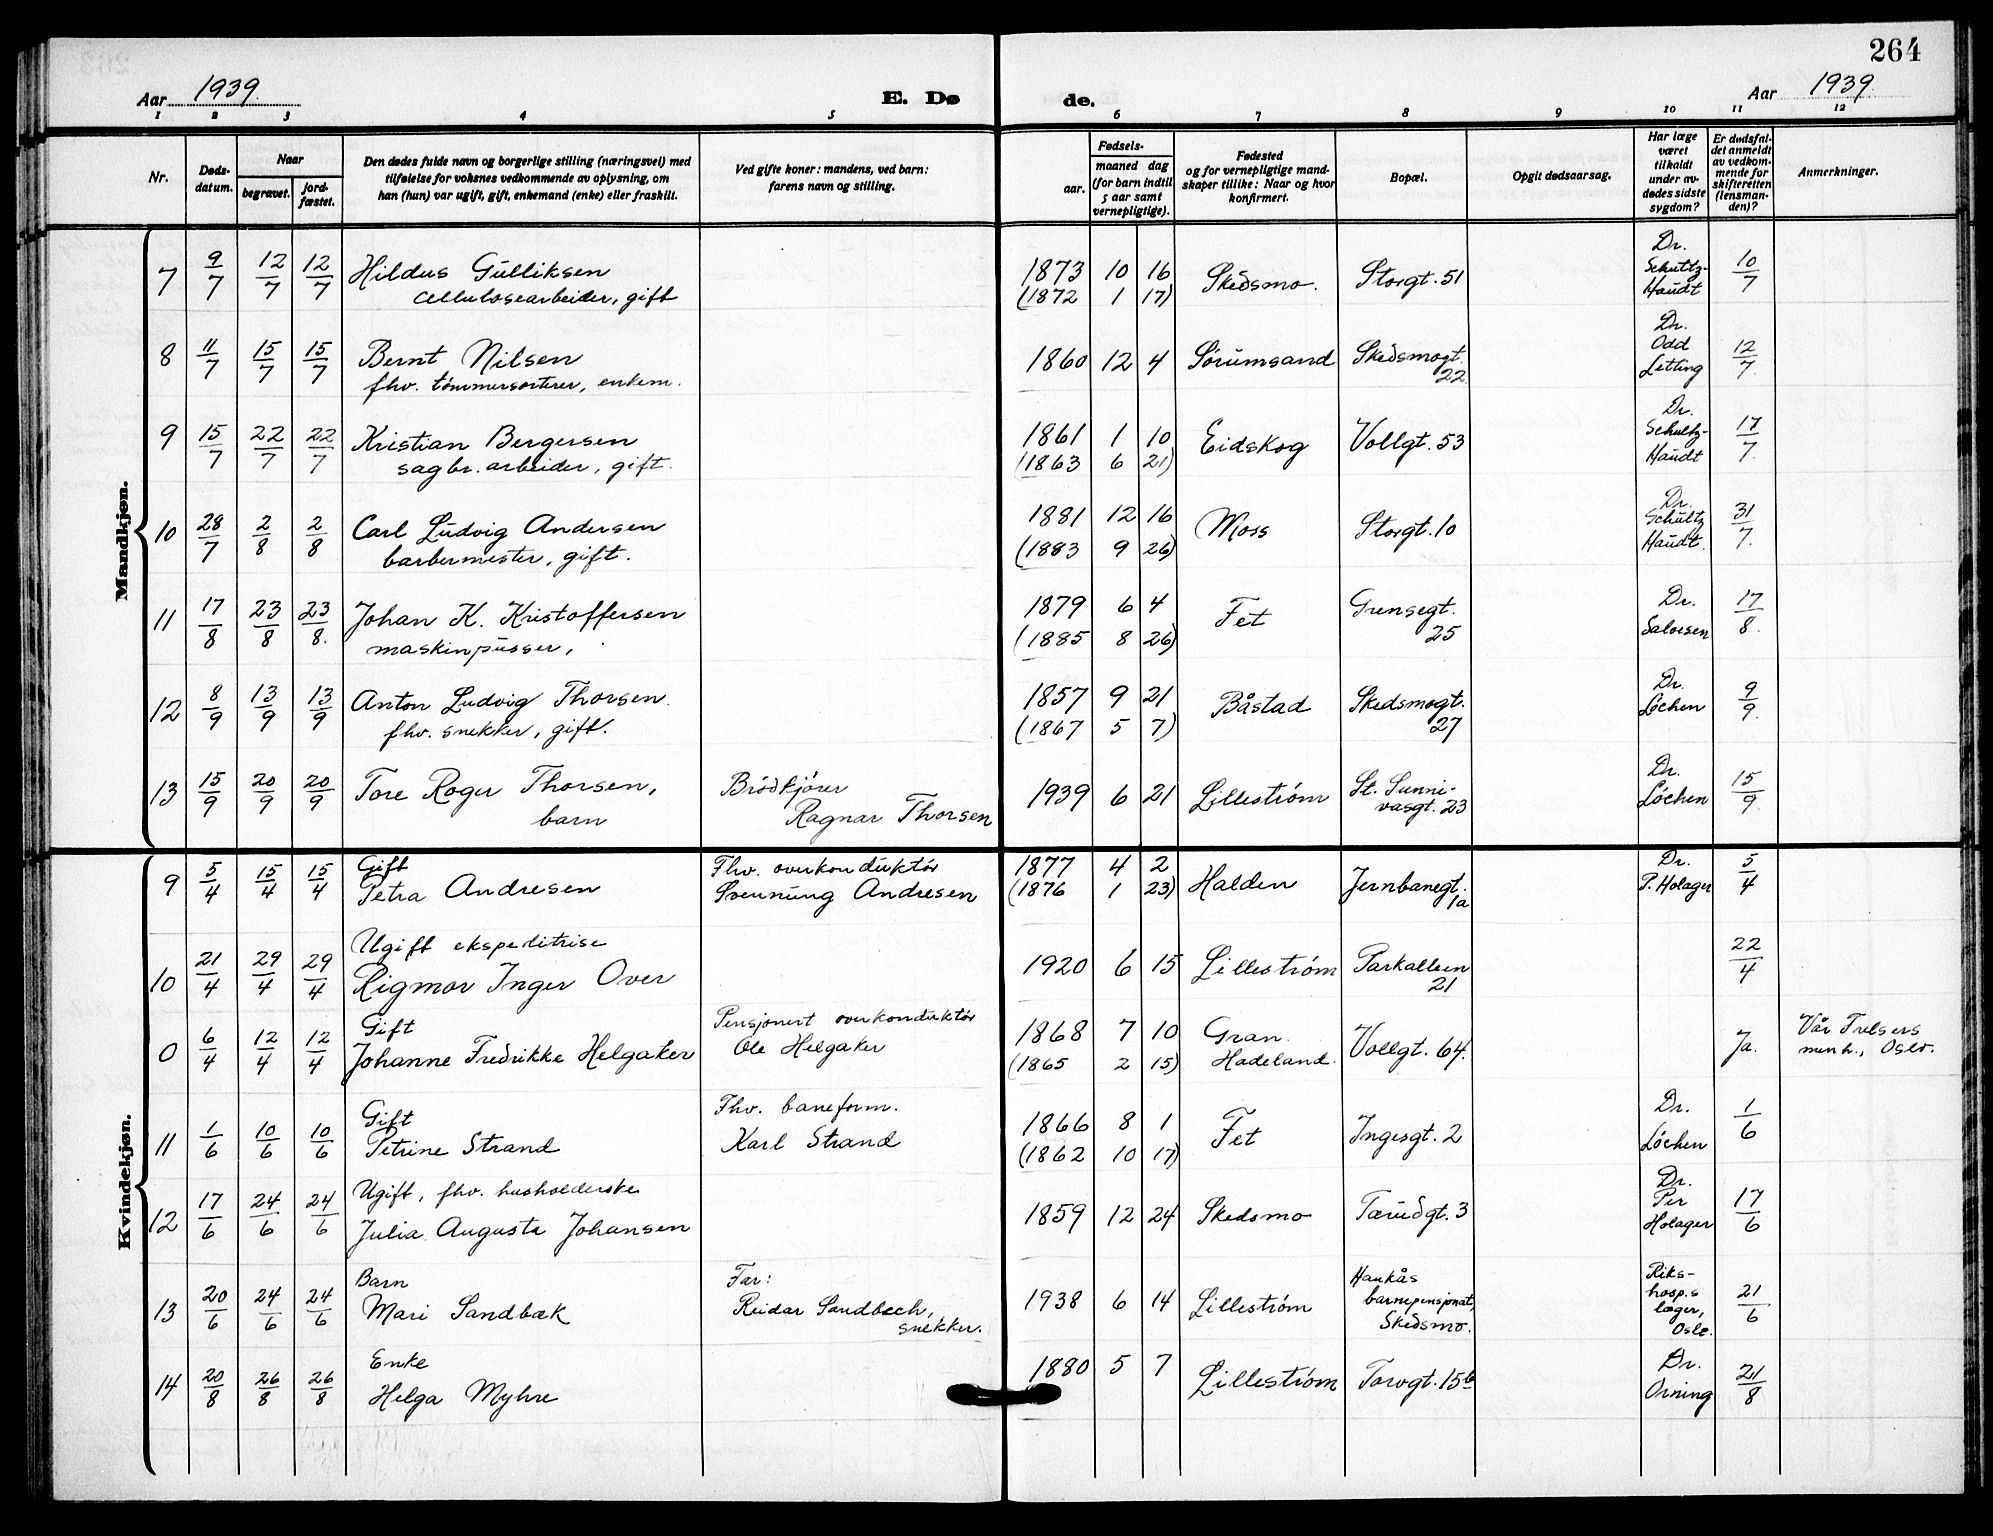 264
Aar 1939. E. Dø de. Aar 1939.
1 2 3 4 5 6 7 8 9 10 11 12
Nr.
Døds-
datum.
Naar
begravet.
jord-
fæstet.
Den dødes fulde navn og borgerlige stilling (næringsvei) med
tilføielse for voksnes vedkommende av oplysning, om
han (hun) var ugift, gift, enkemand (enke) eller fraskilt.
Ved gifte koner: mandens, ved barn:
farens navn og stilling.
Fødsels-
aar.
maaned dag
(for barn indtil
5 aar samt
vernepligtige).
Fødested
og for vernepligtige mand-
skaper tillike: Naar og hvor
konfirmert.
Bopæl.
Opgit dødsaarsag.
Har læge
været
tilkaldt
under av-
dødes sidste
sygdom?
Er dødsfal-
det anmeldt
av vedkom-
mende for
skifteretten
(lensman-
den)?
Anmerkninger.
Mandkjøn.
7 9/7 12/7 12/7 Hildus Gulliksen
cellulosearbeider, gift
1873 10 16
(1872 1 17)
Skedsmo. Storgt. 51
Dr.
Schultz-
Haudt
10/7
8 11/7 15/7 15/7 Bernt Nilsen
fhv. tømmersorterer, enkem.
1860 12 4 Sørumsand Skedsmogt.
22
Dr.
Odd
Letting
12/7.
9 15/7 22/7 22/7 Kristian Bergersen
sagbr. arbeider, gift.
1861 1 10
(1863 6 21)
Eidskog Vollgt. 53
Dr.
Schultz-
Haudt
17/7.
10 28/7 2/8 2/8 Carl Ludvig Andersen
barbermester, gift.
1881 12 16
(1883 9 26)
Moss Storgt. 10
Dr.
Schultz
Haudt.
31/7.
11 17/8 23/8 23/8. Johan K. Kristoffersen
maskinpusser,
1879 6 4
(1885 8 26)
Fet Grensegt.
25
Dr.
Salvesen
17/8.
12 8/9 13/9 13/9 Anton Ludvig Thorsen.
fhv. snekker, gift.
1857 9 21
(1867 5 7)
Båstad Skedsmogt.
27
Dr.
Løchen
9/9.
13 15/9 20/9 20/9 Tore Roger Thorsen,
barn
Brødkjører
Ragnar Thorsen
1939 6 21 Lillestrøm St. Sunni-
vasgt. 23
Dr.
Løchen
15/9.
Kvindekjøn.
9 5/4 15/4 15/4 Gift
Petra Andresen
Fhv. overkonduktør
Svennung Andresen
1877 4 2
(1876 1 23)
Halden Jernbanegt.
1a
Dr.
P. Holager
5/4
10 21/4 29/4 29/4 Ugift ekspeditrise
Rigmor Inger Over
1920 6 15 Lillestrøm Parkalleen
21
22/4
0 6/4 12/4 12/4 Gift
Johanne Fredrikke Helgaker
Pensjonert overkonduktør
Ole Helgaker
1868 7 10
(1865 2 15)
Gran.
Hadeland. Vollgt. 64.
Ja.
Vår Frelsers
menh., Oslo.
11 1/6 10/6 10/6 Gift
Petrine Strand
Fhv. baneform.
Karl Strand
1866 8 1
(1862 10 17)
Fet Ingesgt. 2
Dr.
Løchen
1/6
12 17/6 24/6 24/6 Ugift, fhv. husholderske
Julia Auguste Johansen
1859 12 24 Skedsmo Tærudgt. 3
Dr.
Per
Holager
17/6
13 20/6 24/6 24/6 Barn
Mari Sandbæk
Far:
Reidar Sandbæch,
snekker.
1938 6 14 Lillestrøm
Haukås
barnepensjonat,
Skedsmo.
Riks-
hosp.s
læger,
Oslo.
21/6
14 20/8 26/8 26/8 Enke
Helga Myhre
1880 5 7 Lillestrøm Torvgt. 15b
Dr.
Orning
21/8